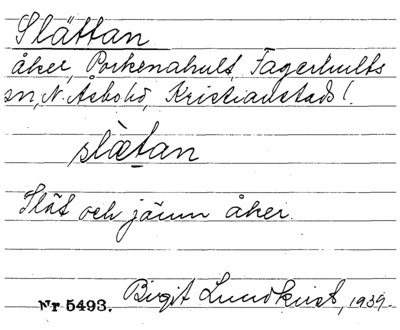 Slättan
åker, Porkenahult, Fagerhults
sn, N. Åsbo hd, Kristianstads l.
slætan
Slät och jämn åker.
Nr 5493. Birgit Lundkvist, 1939.